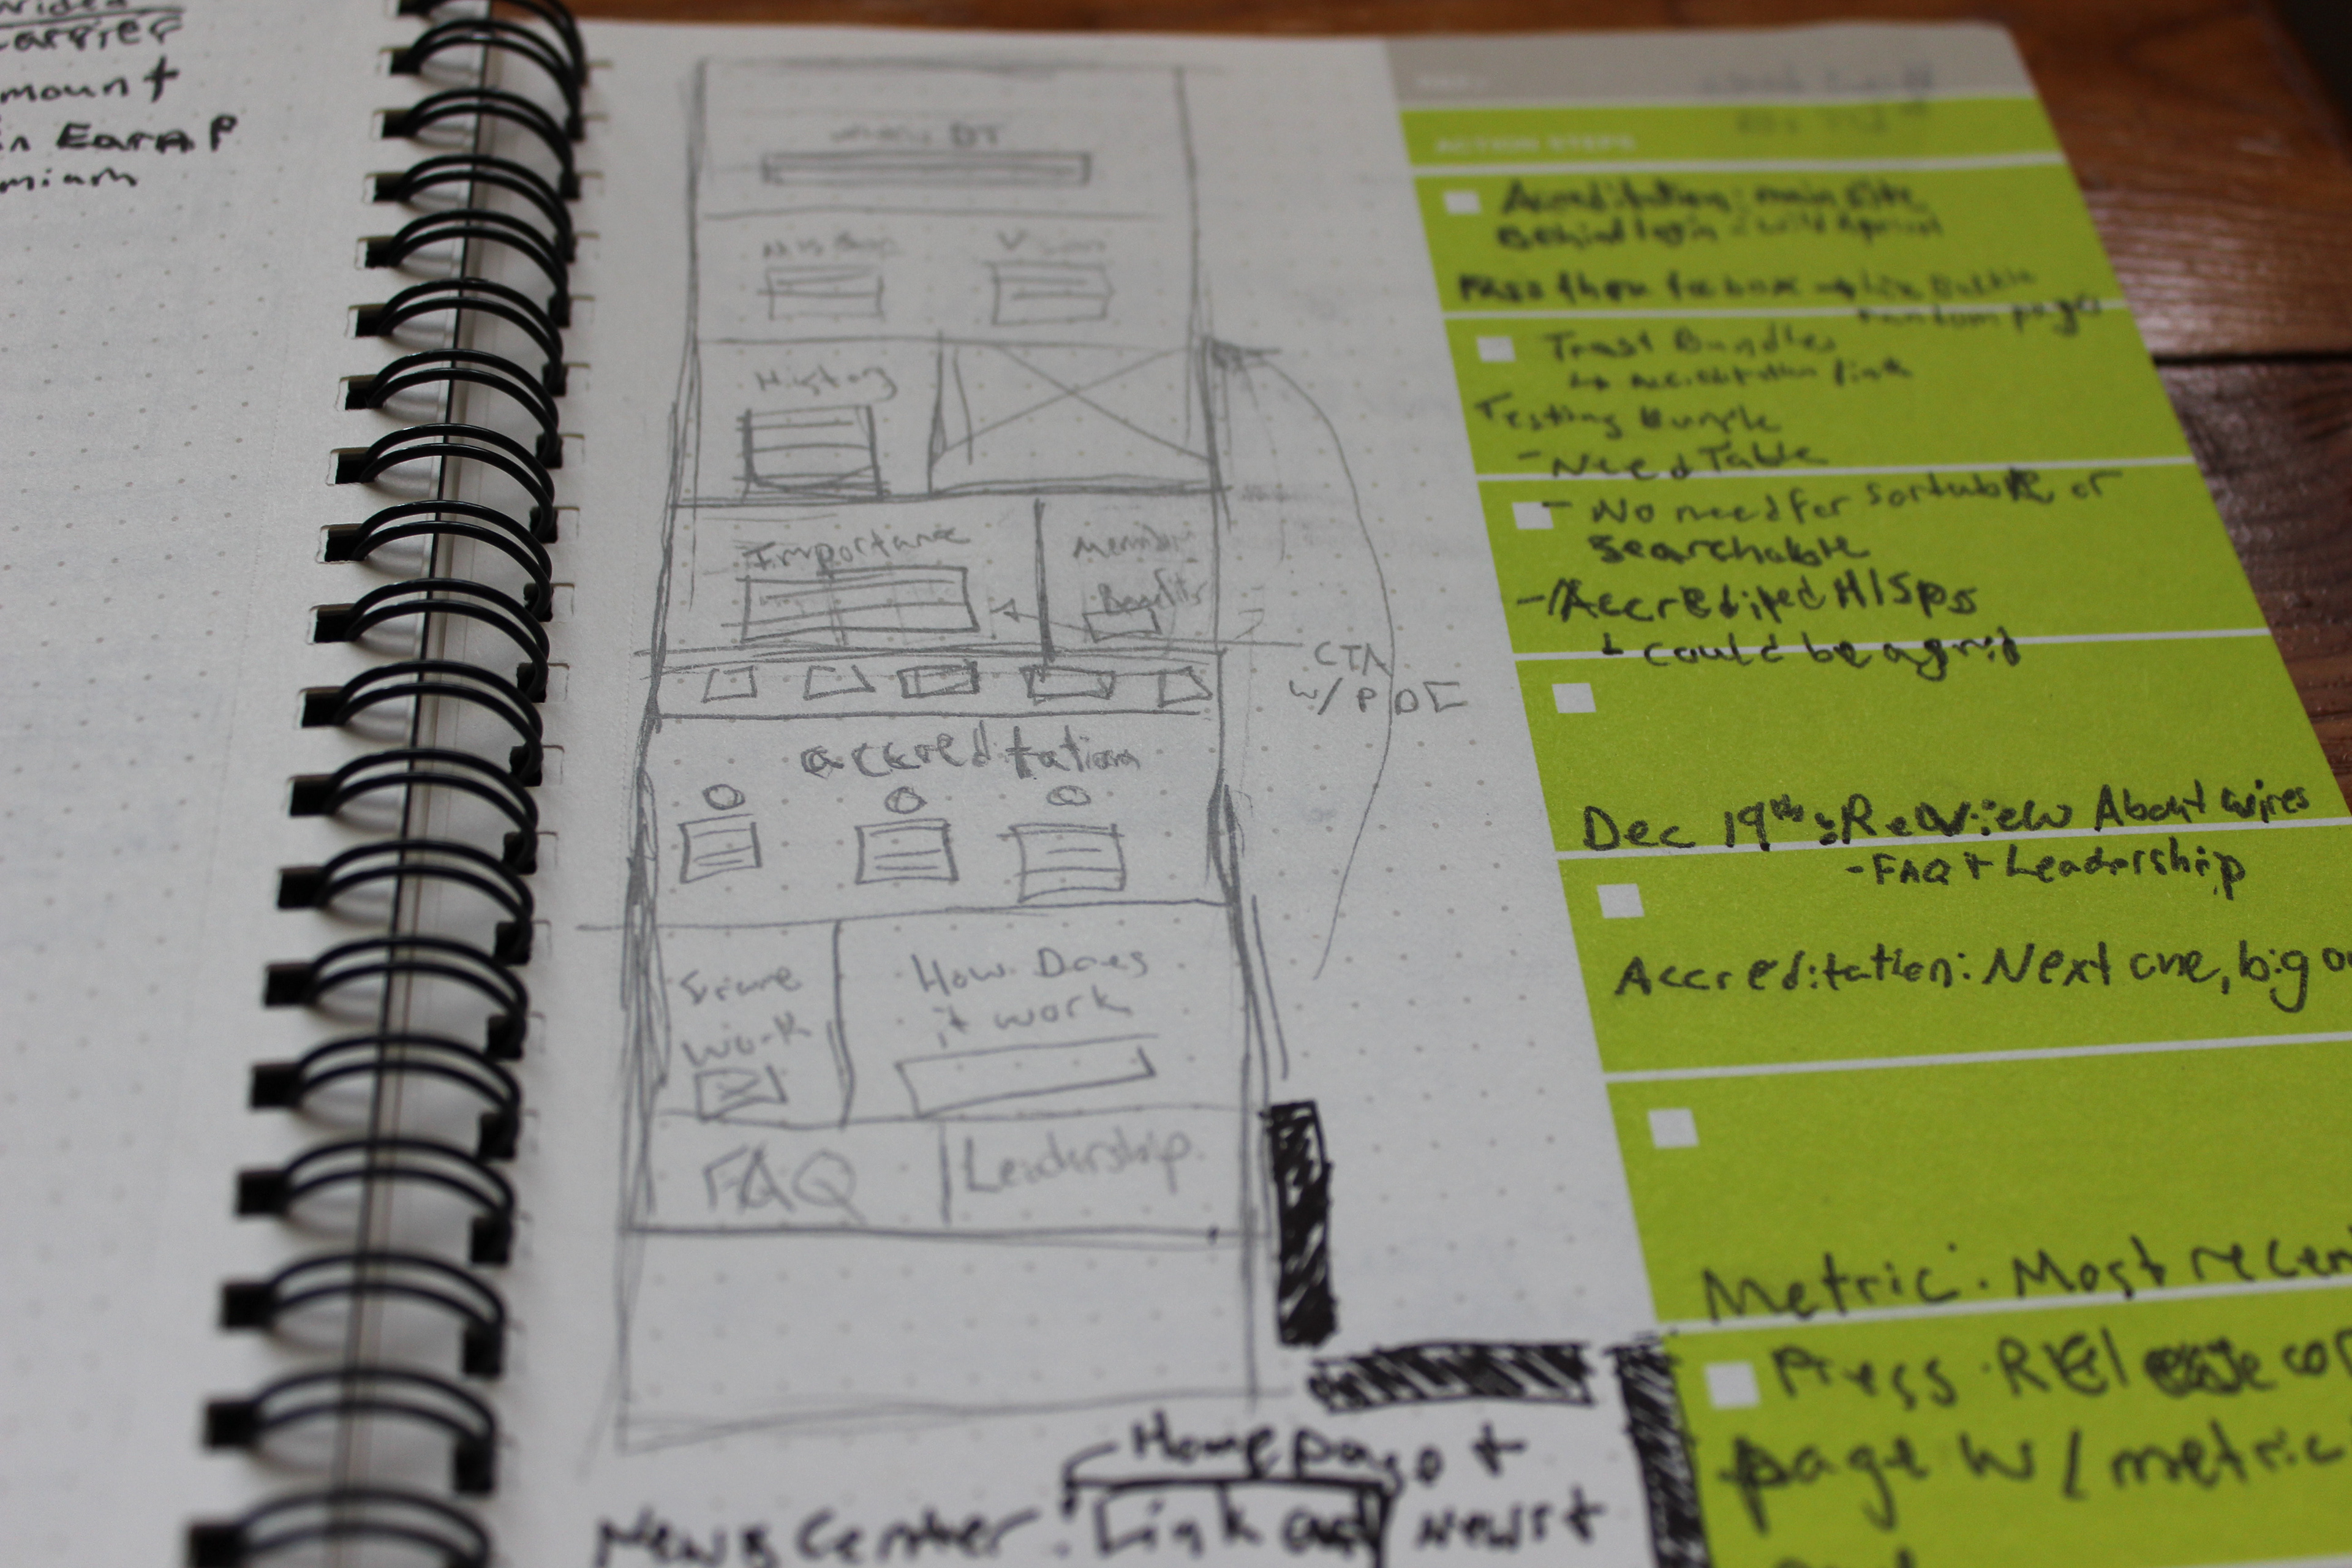 carrier
mount
in EarnP
mium
DT
Mission
Vision
History
Importance
Member
Benefits
CTA
w/ PDF
accreditation
work
How Does
it work
FAQ
Leadership
Homepage +
News Center: Link and News +
ACTION STEPS
Accreditation: main site
Behind login
random pages
Trust Bundles
↳ Accreditation link
Testing Bundle
- Need Table
- No need for sortable or
searchable
- Accredited HISPs
↳ could be a grid
Dec 19th: Review About wires
- FAQ + Leadership
Accreditation: Next one, big
Metric: Most recen
Press Release
page w/ metric